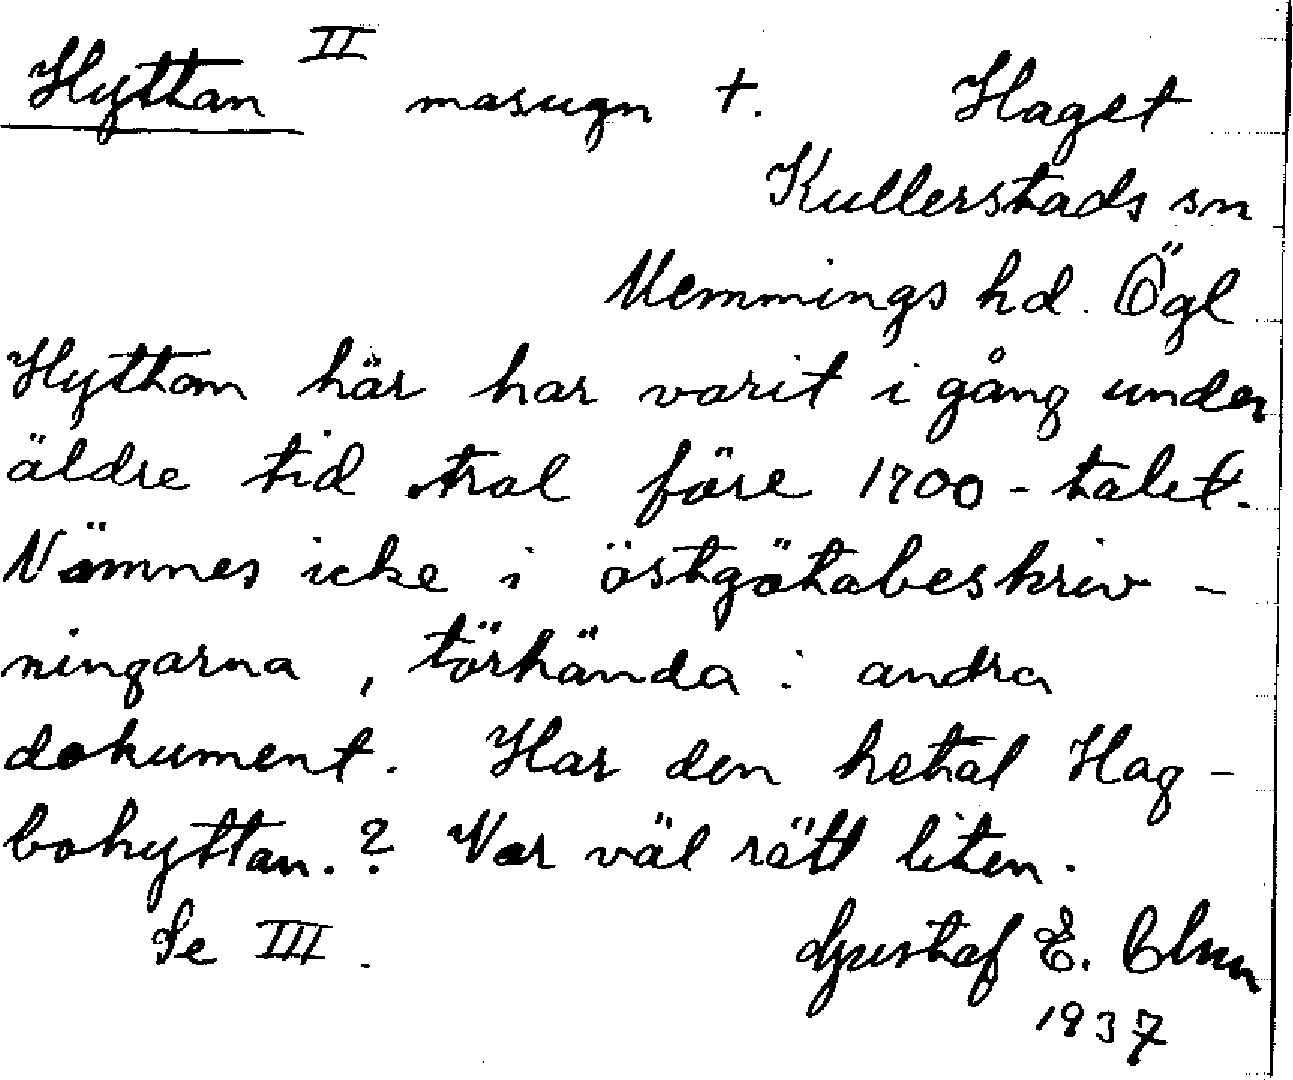 Hyttan II masugn †. Haget
Kullerstads sn
Memmings hd. Ögl
Hyttan här har varit i gång under
äldre tid trol före 1700-talet.
Nämnes icke i östgötabeskriv-
ningarna, törhända i andra
dokument. Har den hetat Hag-
bohyttan.? Var väl rätt liten.
Se III.
Gustaf E.
1937